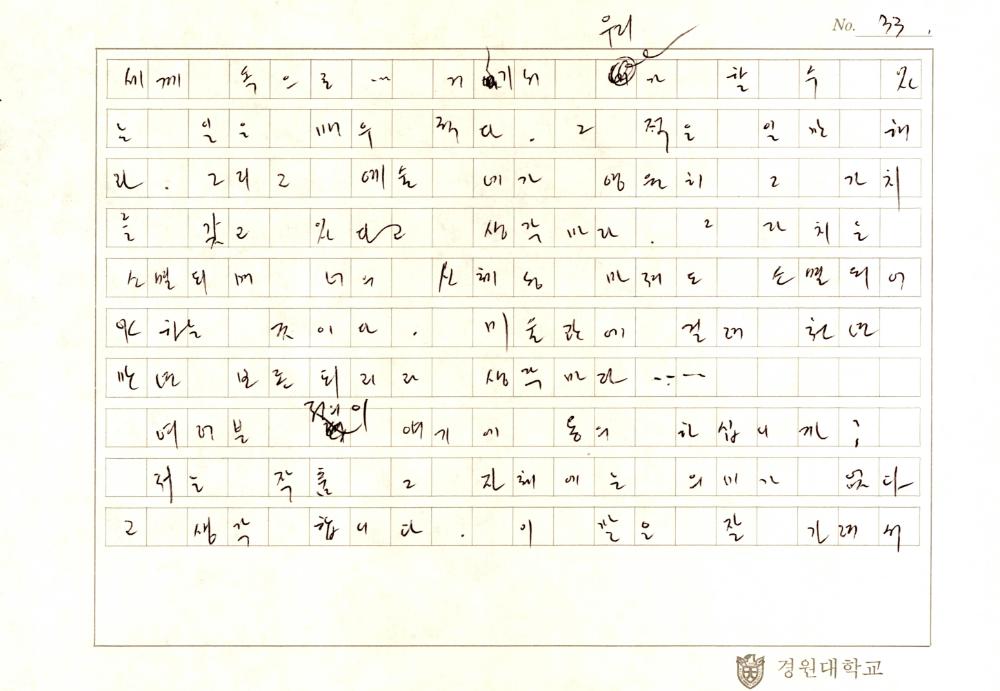 No. 33.
우리
세째 목으로 … 거기서 가 할 수 있
는 일은 매우 적다. 그 적은 일만 해
라. 그리고 예술 네가 영원히 그 가치
를 갖고 있다고 생각 마라. 그 가치는
소멸되며 너의 신체의 마려도 소멸되어
야 하는 것이다. 미술관에 걸려 천년
만년 보존되리라 생각마라 ……
여러분 저의 이 얘기에 동의 하십니까?
저는 작품 그 자체에는 의미가 없다
고 생각 합니다. 이 말을 잘 간려서
경원대학교